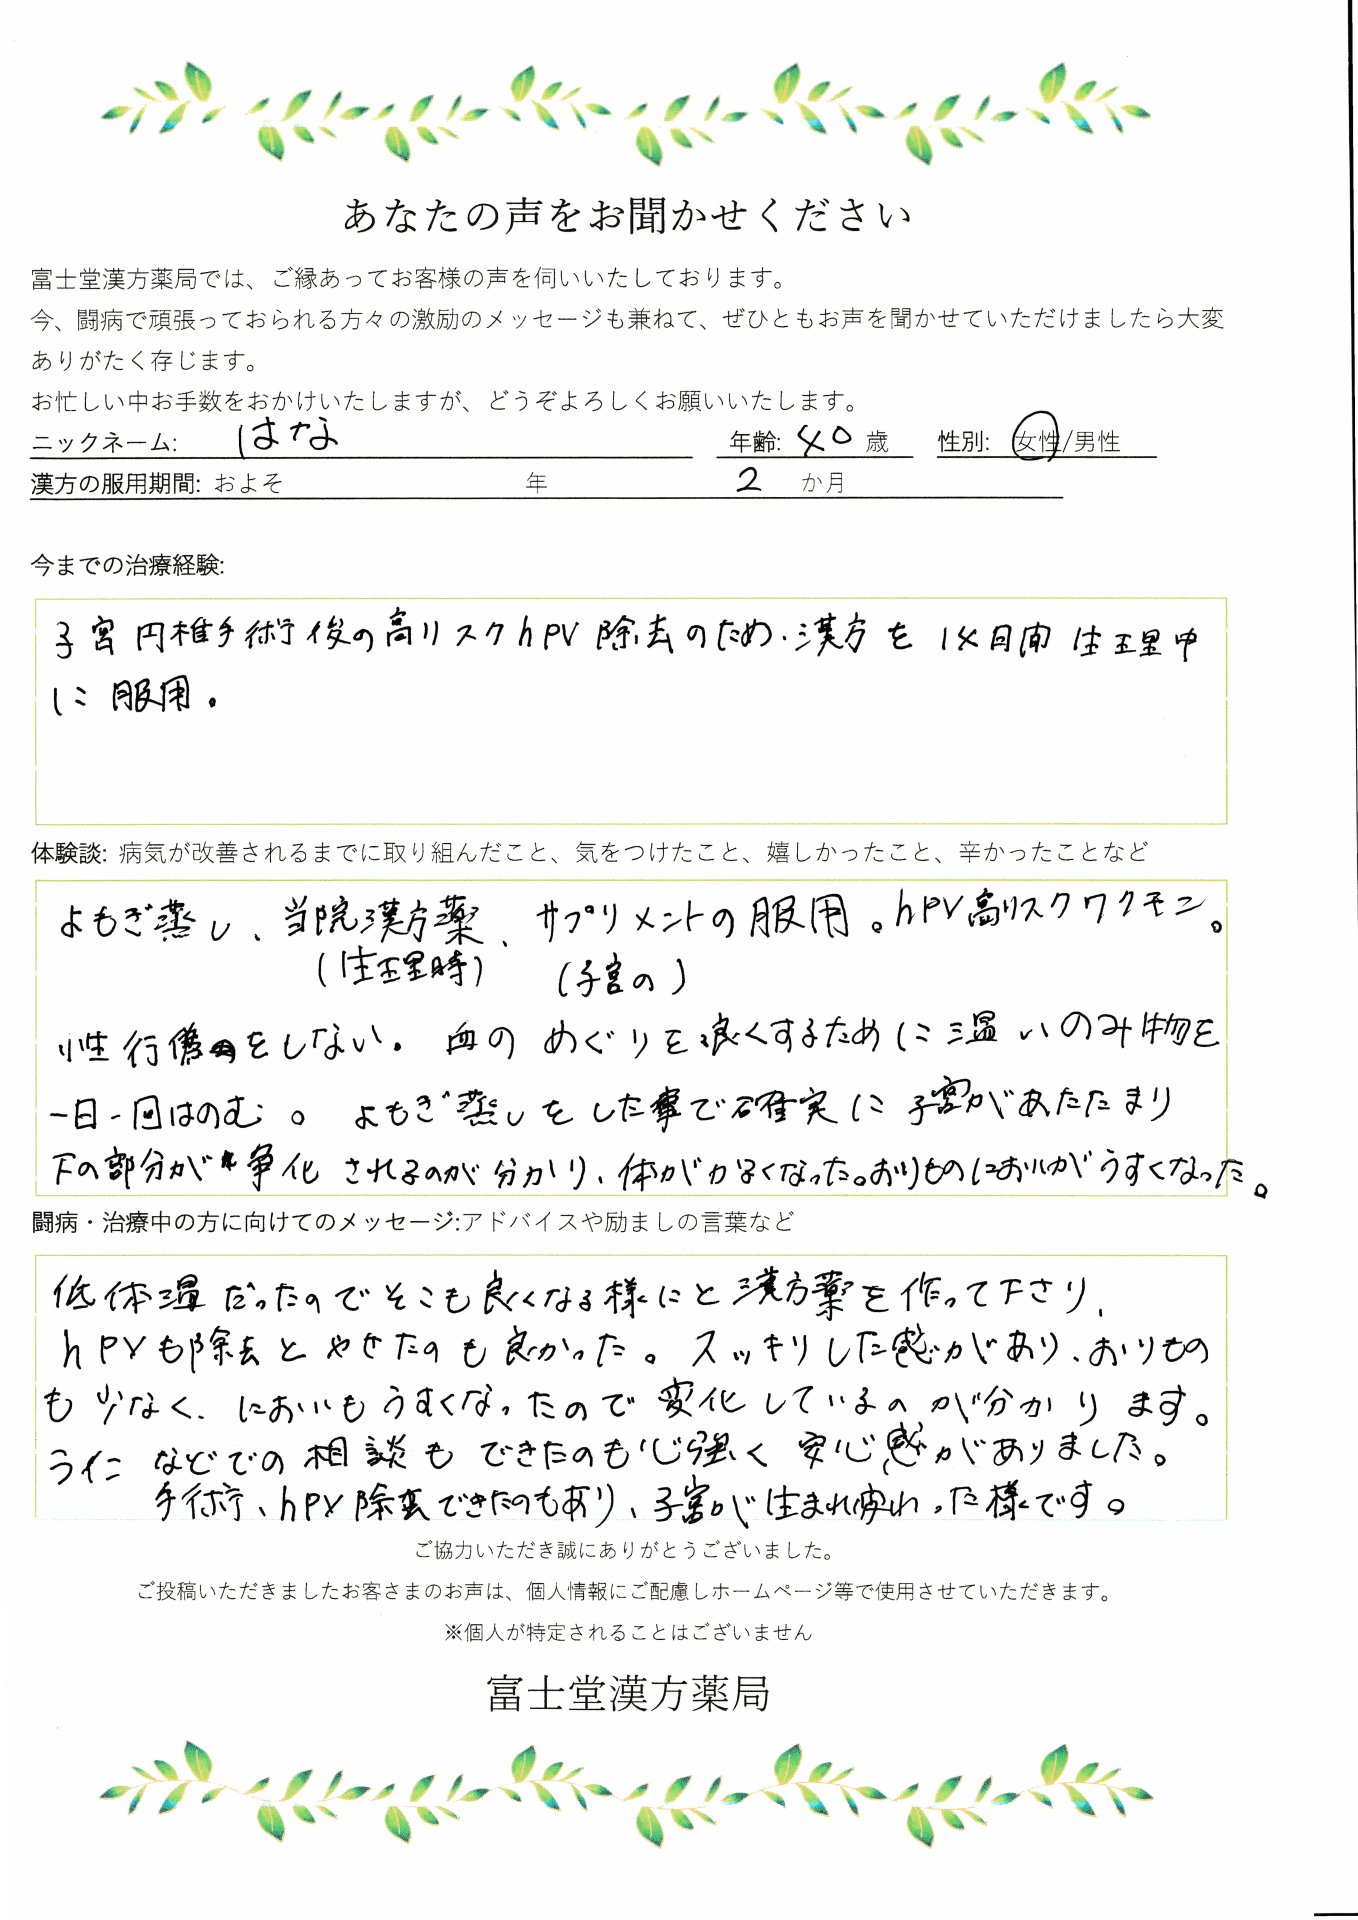 あなたの声をお聞かせください
富士堂漢方薬局では、ご縁あってお客様の声を伺いいたしております。
今、闘病で頑張っておられる方々の激励のメッセージも兼ねて、ぜひともお声を聞かせていただけましたら大変
ありがたく存じます。
お忙しい中お手数をおかけいたしますが、どうぞよろしくお願いいたします。
ニックネーム: はな 年齢: 40 歳 性別: 女性/男性
漢方の服用期間: およそ 年 2 か月
今までの治療経験:
子宮円椎手術後の高リスクhPV除去のため、漢方を14日間生理中
に服用。
体験談: 病気が改善されるまでに取り組んだこと、気をつけたこと、嬉しかったこと、辛かったことなど
よもぎ蒸し、当院漢方薬、サプリメントの服用。hPV高リスクワクモン。
(生理時) (子宮の)
性行為をしない。血のめぐりを良くするために温いのみ物を
一日一回はのむ。よもぎ蒸しをした事で確実に子宮があたたまり
下の部分が浄化されるのが分かり、体がかるくなった。おりものにおいがうすくなった。
闘病・治療中の方に向けてのメッセージ:アドバイスや励ましの言葉など
低体温だったのでそこも良くなる様にと漢方薬を作って下さり、
hPVも除去とやせたのも良かった。スッキリした感があり、おりもの
も少なく、においもうすくなったので変化しているのが分かります。
ラインなどでの相談もできたのも心強く安心感がありました。
手術、hPV除去できたのもあり、子宮が生まれ変わった様です。
ご協力いただき誠にありがとうございました。
ご投稿いただきましたお客さまのお声は、個人情報にご配慮しホームページ等で使用させていただきます。
※個人が特定されることはございません
富士堂漢方薬局